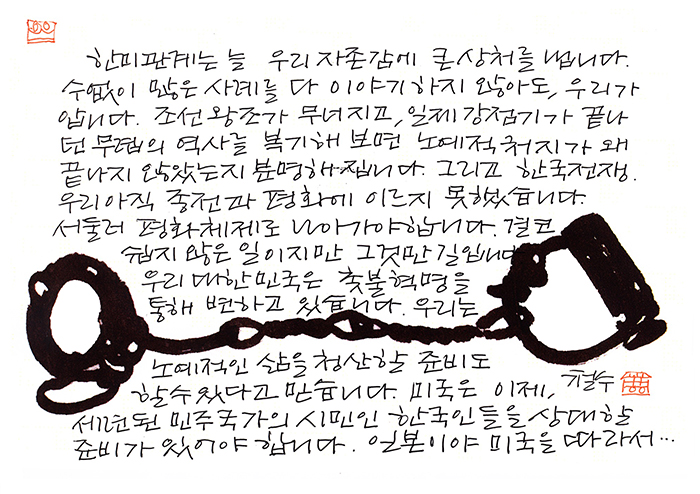 한미관계는 늘 우리 자존감에 큰 상처를 냅니다.
수없이 많은 사례를 다 이야기하지 않아도, 우리가
압니다. 조선왕조가 무너지고, 일제강점기가 끝나
던 무렵의 역사를 복기해 보면 노예적 처지가 왜
끝나지 않았는지 분명해집니다. 그리고 한국전쟁.
우리 아직 종전과 평화에 이르지 못했습니다.
서둘러 평화체제로 나아가야합니다. 결코
쉽지 않은 일이지만 그것만 길입니다
우리 대한민국은 촛불혁명을
통해 변하고 있습니다. 우리는
노예적인 삶을 청산할 준비도
할 수 있다고 믿습니다. 미국은 이제, 철수
세련된 민주국가의 시민인 한국인들을 상대할
준비가 있어야 합니다. 일본이야 미국을 따라서…